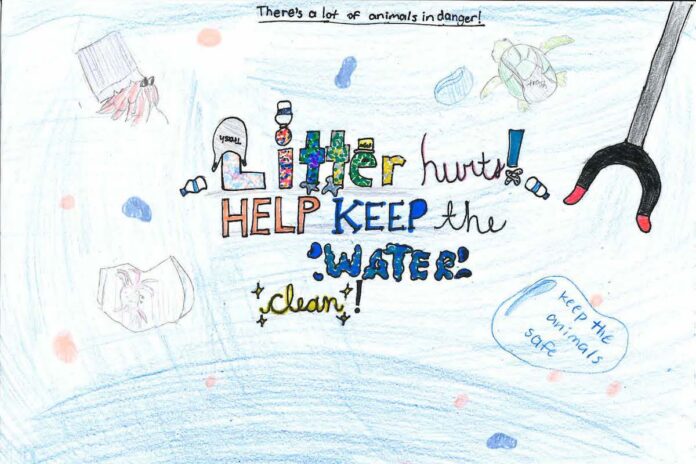 There's a lot of animals in danger!
Trash
trash
Litter hurts!
HELP KEEP the
WATER
clean!
keep the
animals
safe